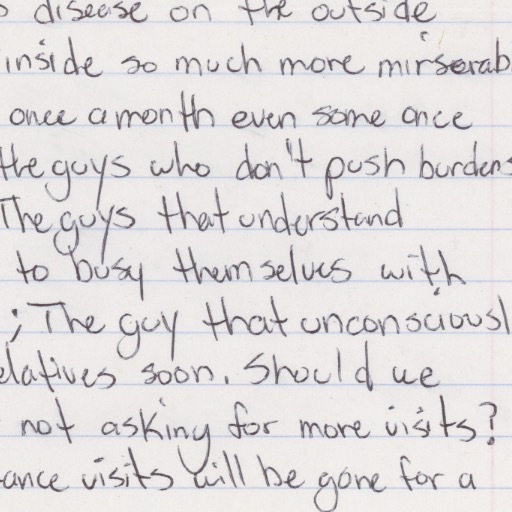 disease on the outside
inside so much more mirserab
once a month even some once
the guys who don't push burdens
The guys that understand
to busy themselves with
; The guy that unconsciousl
elatives soon. Should we
not asking for more visits?
ance visits will be gone for a